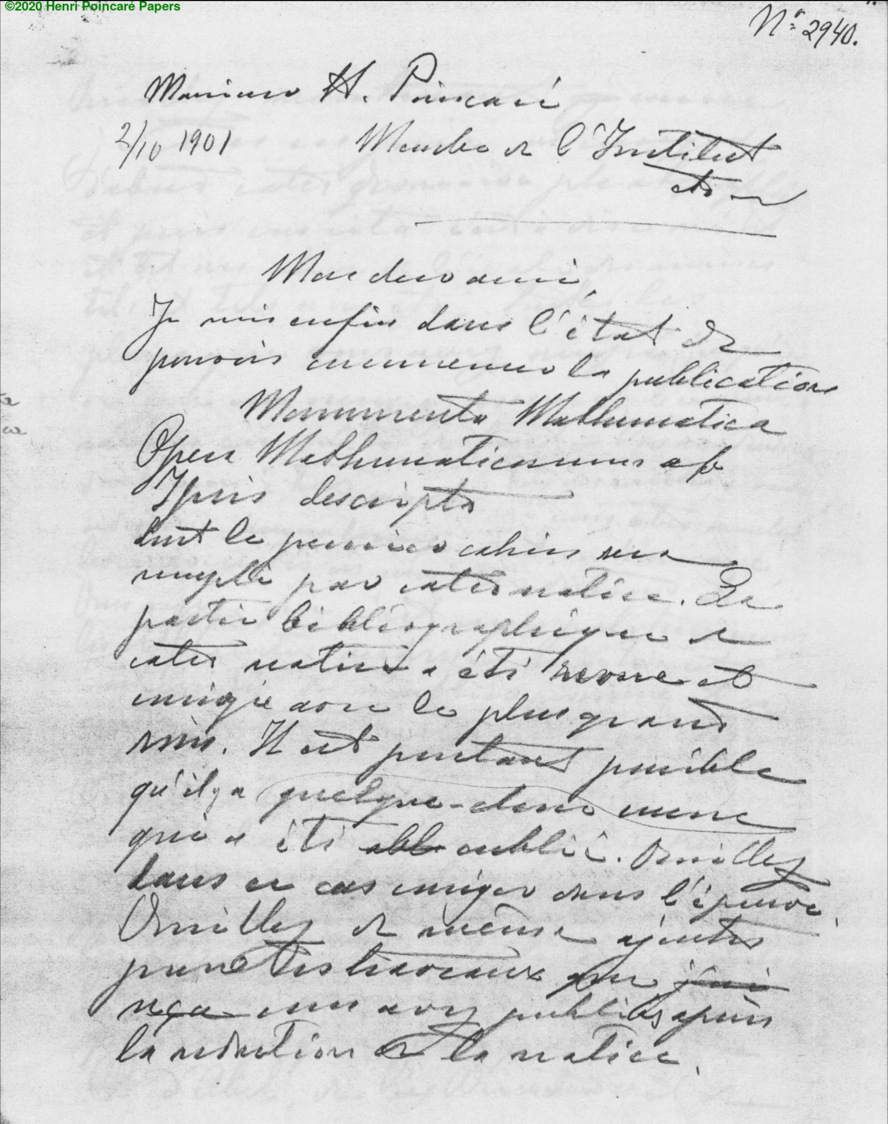 ©2020 Henri Poincaré Papers
No 2940.
Monsieur H. Poincaré
2/10 1901
Membre de l'Institut
etc
Mon cher ami,
Je suis enfin dans l'état de
pouvoir commencer la publication
Monumenta Mathematica
Opera Mathematicorum ab
Ipsis descripta
dont le premier cahier sera
rempli par votre notice. La
partie bibliographique de
votre notice a été revue et
corrigée avec le plus grand
soin. Il est pourtant possible
qu'il y a quelque-chose encore
qui a été oublié. Veuillez
dans ce cas corriger dans l'épreuve.
Veuillez de même ajouter
les travaux que
vous avez publiés après
la rédaction de la notice.